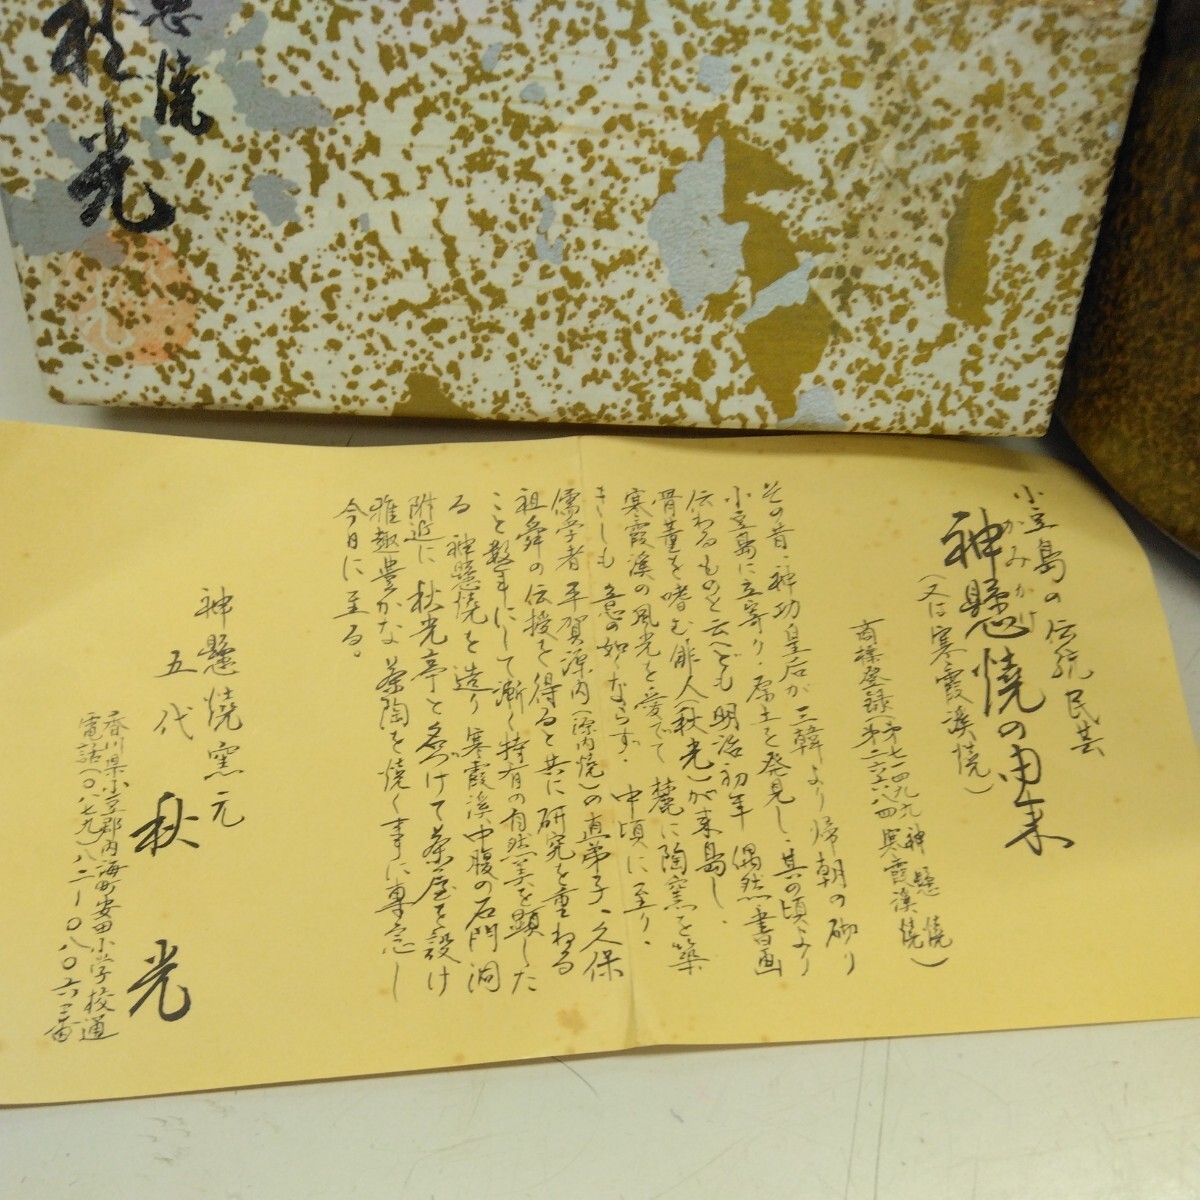 焼
秋光
小豆島の伝統民芸
かみかけ
神懸焼の由来
(又は寒霞溪焼)
商標登録(第七一四九九 神懸焼
第二六六八四 寒霞溪焼)
その昔・神功皇后が三韓より帰朝の砌り
小豆島に立寄り・原土を発見し・其の頃より
伝わるものと云へども 明治初年 偶然書画
骨董を嗜む俳人(秋光)が来島し、
寒霞溪の風光を愛でて 麓に陶窯を築
きしも 意の如くならず、中頃に至り、
儒学者 平賀源内(源内焼)の直弟子、久保
祖舜の伝授を得ると共に研究を重ねる
こと数年にして漸く特有の自然美を顕した
る 神懸焼を造り 寒霞溪中腹の石門洞
附近に 秋光亭と名づけて茶屋を設け
雅趣豊かな 茶陶を焼く事に専念し
今日に至る。
神懸焼窯元
五代 秋光
香川県小豆郡内海町安田小学校通
電話(〇八七九)八二ー〇八〇六三番